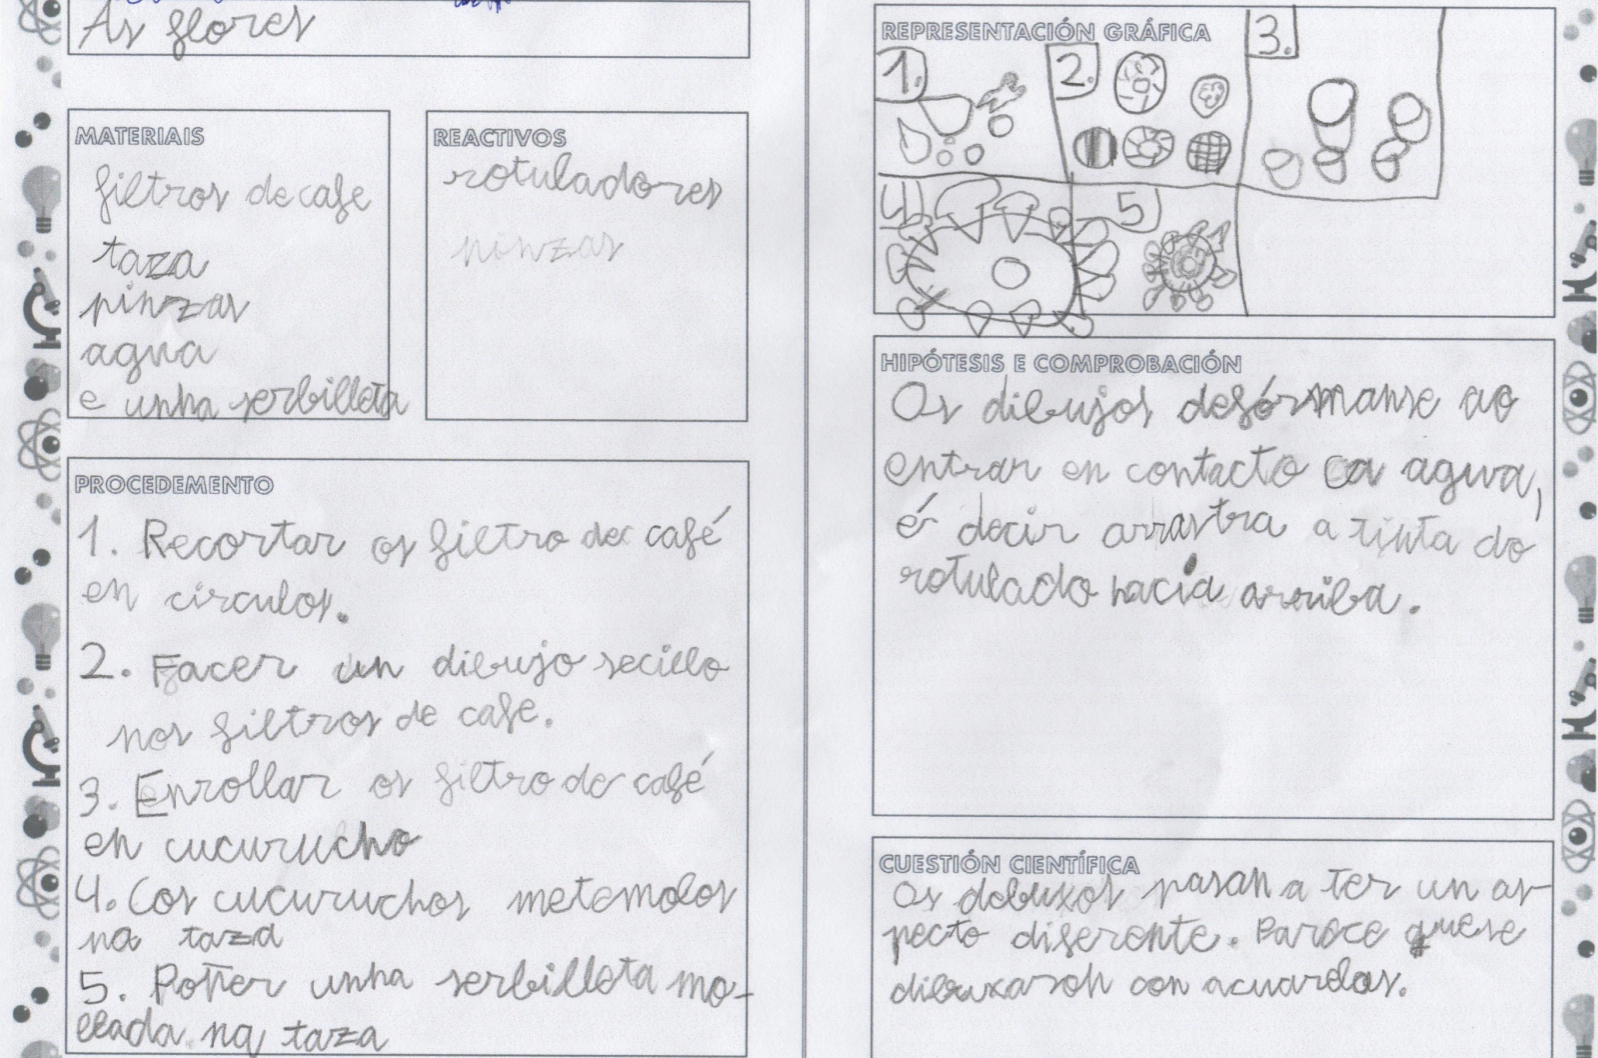 As flores
MATERIAIS
filtros de cafe
taza
pinzas
agua
e unha serbilleta
REACTIVOS
rotuladores
pinzas
PROCEDEMENTO
1. Recortar os filtro de café
en circulos.
2. Facer un dibujo secillo
nos filtros de cafe.
3. Enrollar os filtro de café
en cucurucho
4. Cos cucuruchos metemolos
na taza
5. Poñer unha serbilleta mo-
llada na taza
REPRESENTACIÓN GRÁFICA
1.
2.
3.
4
5
HIPÓTESIS E COMPROBACIÓN
Os dibujos desórmanse ao
entrar en contacto ca agua,
é decir arrastra a tinta do
rotulado hacia arriba.
CUESTIÓN CIENTÍFICA
Os dobuxos pasan a ter un as-
pecto diferente. Paroce quese
dibuxaron con acuarelas.